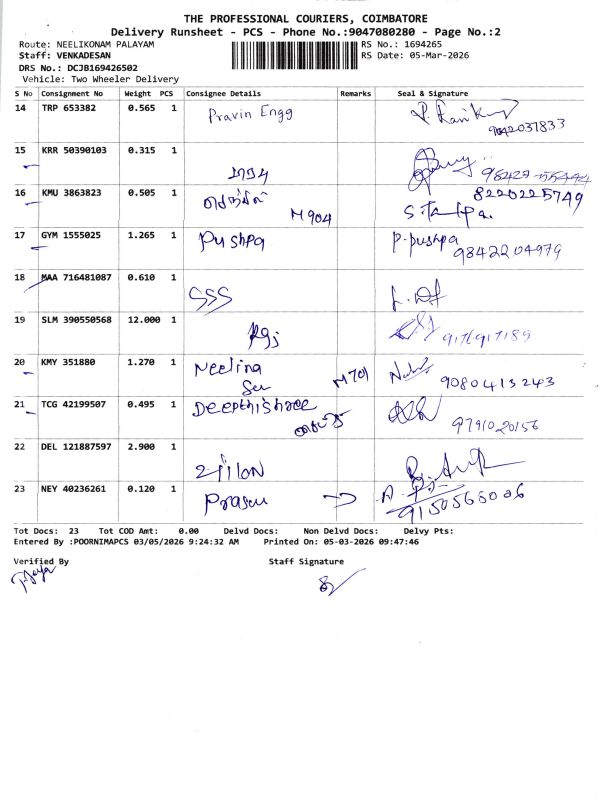 THE PROFESSIONAL COURIERS, COIMBATORE
Delivery Runsheet - PCS - Phone No.:9047080280 - Page No.:2
Route: NEELIKONAM PALAYAM
RS No.: 1694265
Staff: VENKADESAN
RS Date: 05-Mar-2026
DRS No.: DCJB169426502
Vehicle: Two Wheeler Delivery
S No Consignment No Weight PCS Consignee Details Remarks Seal & Signature
14 TRP 653382 0.565 1 Pravin Engg
9042037833
15 KRR 50390103 0.315 1
16 KMU 3863823 0.505 1 M904 8220225749
17 GYM 1555025 1.265 1 Pushpa P. pushpa
9842204979
18 MAA 716481087 0.610 1 SSS
19 SLM 390550568 12.000 1 9176917189
20 KMY 351880 1.270 1 Neelina M701
9080413243
21 TCG 42199507 0.495 1 Deepthishree
9791020156
22 DEL 121887597 2.900 1
23 NEY 40236261 0.120 1
9150565006
Tot Docs: 23 Tot COD Amt: 0.00 Delvd Docs: Non Delvd Docs: Delvy Pts:
Entered By :POORNIMAPCS 03/05/2026 9:24:32 AM Printed On: 05-03-2026 09:47:46
Verified By Staff Signature